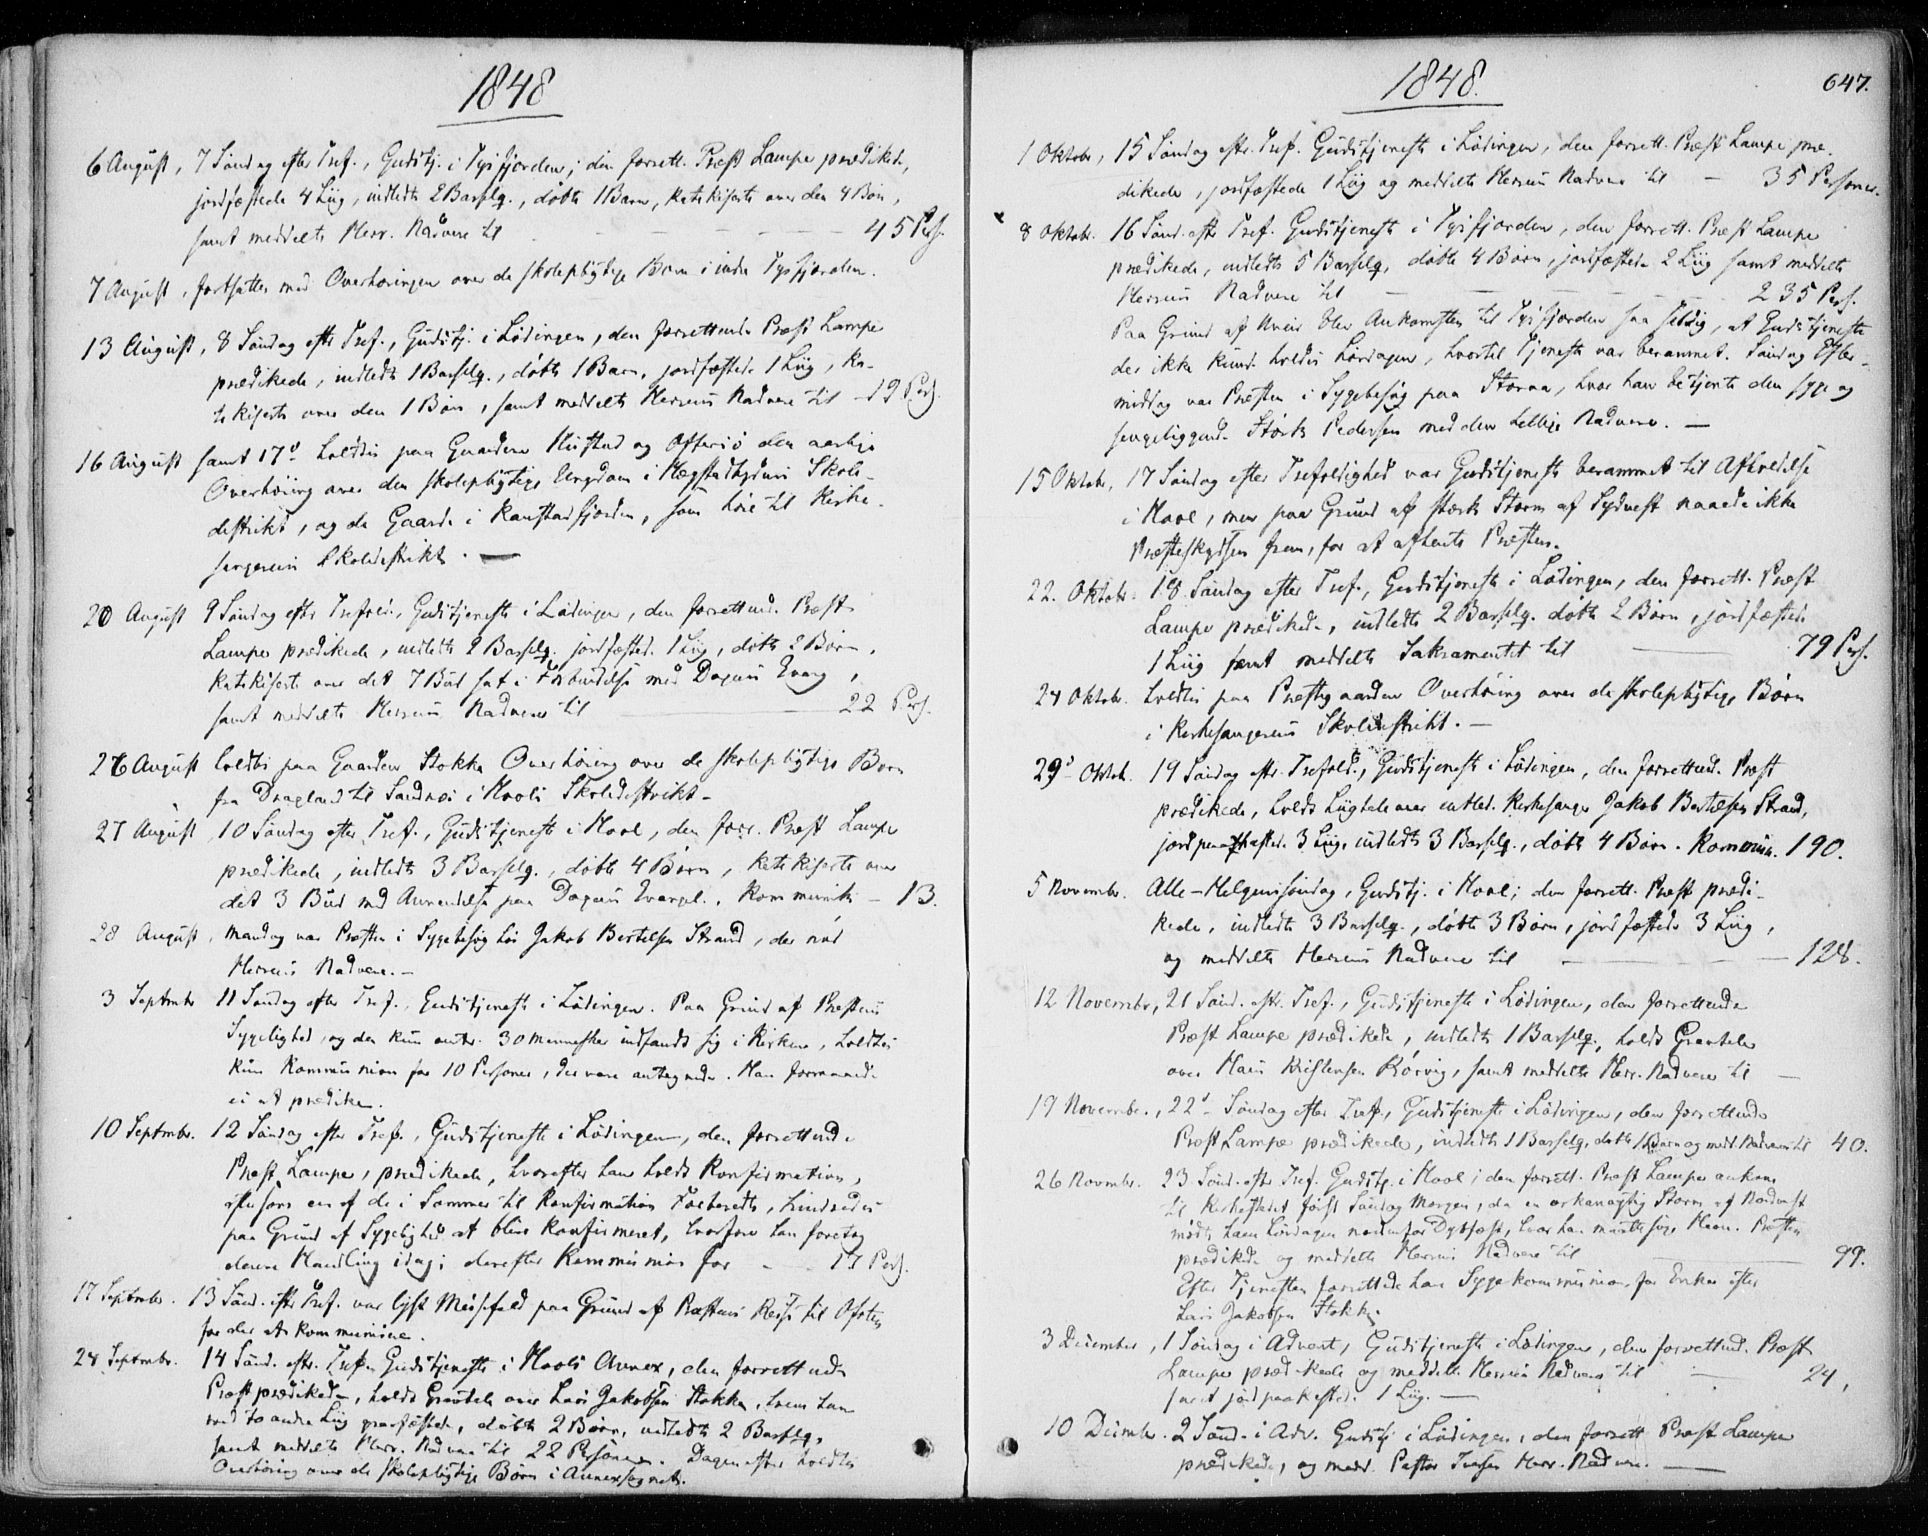 1848
6 August, 7 Søndag efter Tref., Gudstj. i Tysfjorden; den forrett. Præst Lampe prædikede,
jordfæstede 4 Liig, indledte 2 Barselq., døbte 1 Barn, katekiserte over den 4 Bøn,
samt meddelte Herr. Nadvere til 45 Pers.
7 August, fortsattes med Overhøringen over de skolepligtige Børn i indre Tysfjorden.
13 August, 8 Søndag efter Tref., Gudstj. i Lødingen, den forrettende Præst Lampe
prædikede, indledte 1 Barselq., døbte 1 Barn, jordfæstede 1 Liig, ka-
tekiserte over den 1 Bøn, samt meddelte Herrens Nadvere til 19 Pers.
16 August samt 17de holdtes paa Gaardene og Offersø den aarlige
Overhøring over den skolepligtige Ungdom i Skole-
distrikt, og de Gaarde i Kanstadfjorden, som høre til Kirke-
sangerens Skoledistrikt. —
20 August 9 Søndag efter Trefold., Gudstjeneste i Lødingen, den forrettend. Præst
Lampe prædikede, indledte 2 Barselq. jordfæsted. 1 Liig, døbte 2 Børn,
katekiserte over det 7 Bud sat i Forbindelse med Dagens Evang.,
samt meddelte Herrens Nadvere til 22 Pers.
26 August holdtes paa Gaarden Stokke Overhøring over de skolepligtige Børn
fra Dragland til Sandnæs i Hools Skoledistrikt. —
27 August, 10 Søndag efter Tref., Gudstjeneste i Hool, den forr. Præst Lampe
prædikede, indledte 3 Barselq., døbte 4 Børn, katekiserte over
det 3 Bud med Anvendelse paa Dagens Evangel., kommunik. — 13.
28 August, Mandag var Præsten i Sygebesøg hos Jakob Bertelsen Strand, der nød
Herrens Nadvere. —
3 Septmbr 11 Søndag efter Tref., Gudstjeneste i Lødingen. Paa Grund af Præstens
Sygelighed, og da kun omtr. 30 Mennesker indfandt sig i Kirken, holdtes
kun Kommunion for 10 Personer, der vare antegnede. Han formaaede
ei at prædike.
10 Septmbr. 12 Søndag efter Tref., Gudstjeneste i Lødingen, den forrettende
Præst Lampe, prædikede, hvorefter han holdt Konfirmation,
eftersom en af de i Sommer til Konfirmation Forberedte, hindredes
paa Grund af Sygelighed at blive konfirmeret, hvorfore han foretog
denne Handling idag; derefter Kommunion for 17 Pers.
17 Septmbr. 13 Sønd. efter Tref. var lyst Messefald paa Grund af Præstens Reise til Ofoten
for der at kommunicere.
24 Septmbr. 14 Sønd. eftr. Tref. Gudstjeneste i Hools Annex, den forrettende
Præst prædikede, holdt Gravtale over Lars Jakobsen Stokke, hvem han
med to andre Liig jordfæstede, døbte 2 Børn, indledte 2 Barselq.
samt meddelte Herr. Nadvere til 22 Personer. Dagen efter holdtes
Overhøring over de skolepligtige Børn i Annexsognet.
1848.
647.
1 Oktobr, 15 Søndag eftr. Tref. Gudstjeneste i Lødingen, den forrett. Præst Lampe præ-
dikede, jordfæstede 1 Liig og meddelte Herrens Nadvere til — 35 Personer.
8 Oktobr. 16 Sønd. eftr Tref. Gudstjeneste i Tysfjorden, den forrett. Præst Lampe
prædikede, indledte 5 Barselq. døbte 4 Børn, jordfæstede 2 Liig samt meddelte
Herrens Nadvere til 235 Pers.
Paa Grund af Uveir blev Ankomsten til Tysfjorden saa sildig, at Gudstjeneste
der ikke kunde holdes Lørdagen, hvortil Tjeneste var berammet. Søndag Efter-
middag var Præsten i Sygebesøg paa Storaa, hvor han betjente den syge og
sengeliggende Størk Pedersen med den hellige Nadvere. —
15 Oktobr, 17 Søndag efter Trefoldighed var Gudstjeneste berammet til Afholdelse
i Hool, men paa Grund af stærk Storm af Sydvest naaede ikke
Præsteskydsen frem, for at afhente Præsten.
22. Oktobr. 18 Søndag efter Tref., Gudstjeneste i Lødingen, den forrett. Præst
Lampe prædikede, indledte 2 Barselq. døbte 2 Børn, jordfæsted.
1 Liig samt meddelte Sakramentet til 79 Pers.
24 Oktobr. holdtes paa Præstegaarden Overhøring over de skolepligtige Børn
i Kirkesangerens Skoledistrikt. —
29de Oktob. 19 Søndag eftr. Trefold., Gudstjeneste i Lødingen, den forrettend. Præst
prædikede, holdt Liigtale over entled. Kirkesanger Jakob Bertelsen Strand,
jordpaakasted. 3 Liig, indledte 3 Barselq., døbte 4 Børn. Kommun. 190.
5 Novembr. Alle-Helgenssøndag, Gudstj. i Hool; den forrett. Præst prædi-
kede, indledte 3 Barselq., døbte 3 Børn, jordfæstede 3 Liig,
og meddelte Herrens Nadvere til 128.
12 Novembr, 21 Sønd. eftr. Tref., Gudstjeneste i Lødingen, den forrettende
Præst Lampe prædikede, indledte 1 Barselq., holdt Gravtale
over Hans Kristensen Rørvig, samt meddelte Herr. Nadvere til —
19 Novembr., 22de Søndag efter Tref., Gudstjeneste i Lødingen, den forrettende
Præst Lampe prædikede, indledte 1 Barselq, døbte 1 Barn og medd. Nadveren til 40.
26 Novembr. 23 Sønd. eftr Tref. Gudstj. i Hool; den forrett. Præst Lampe ankom
til Kirkestedet først Søndag Morgen, da en orkanagtig Storm af Nordvest
mødte ham Lørdagen, hvor han maatte søge Havn. Præsten
prædikede og meddelte Herrens Nadvere til 99.
Efter Tjenesten forrettede han Sygekommunion for Enken efter
Lars Jakobsen Stokke.
3 December, 1 Søndag i Advent, Gudstjeneste i Lødingen, den forrettend. Præst
Lampe prædikede og meddelte Herrens Nadvere til 24,
samt jordpaakastede 1 Liig. —
10 Decmbr. 2 Sønd. i Adv. Gudstj i Lødingen, den forrett Præst Lampe
prædikede, og medd. Pastor Iversen Herr. Nadvere. —